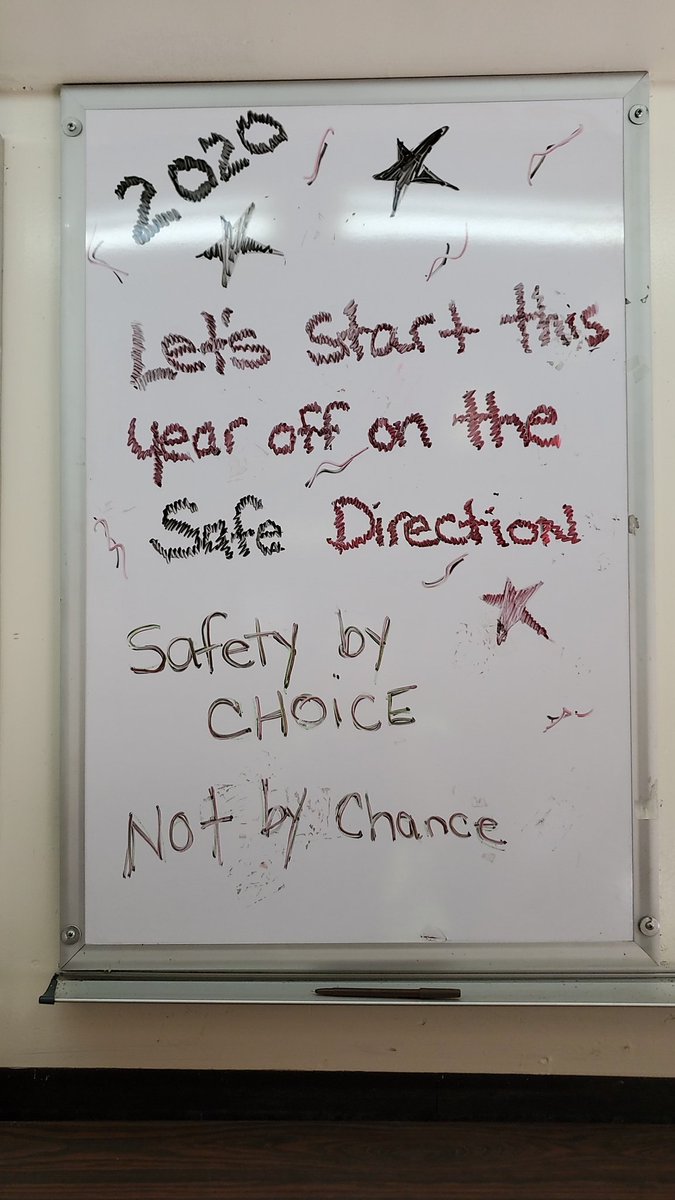 2020
Let's start this
year off on the
Safe Direction!
Safety by
CHOiCE
Not by Chance